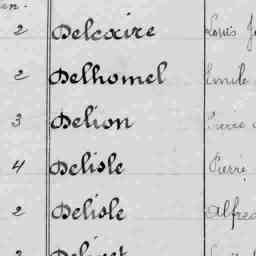 2 Delcaire Louis
2 Delhomel Emile
3 Delion Pierre
4 Delisle Pierre
2 Delisle Alfred